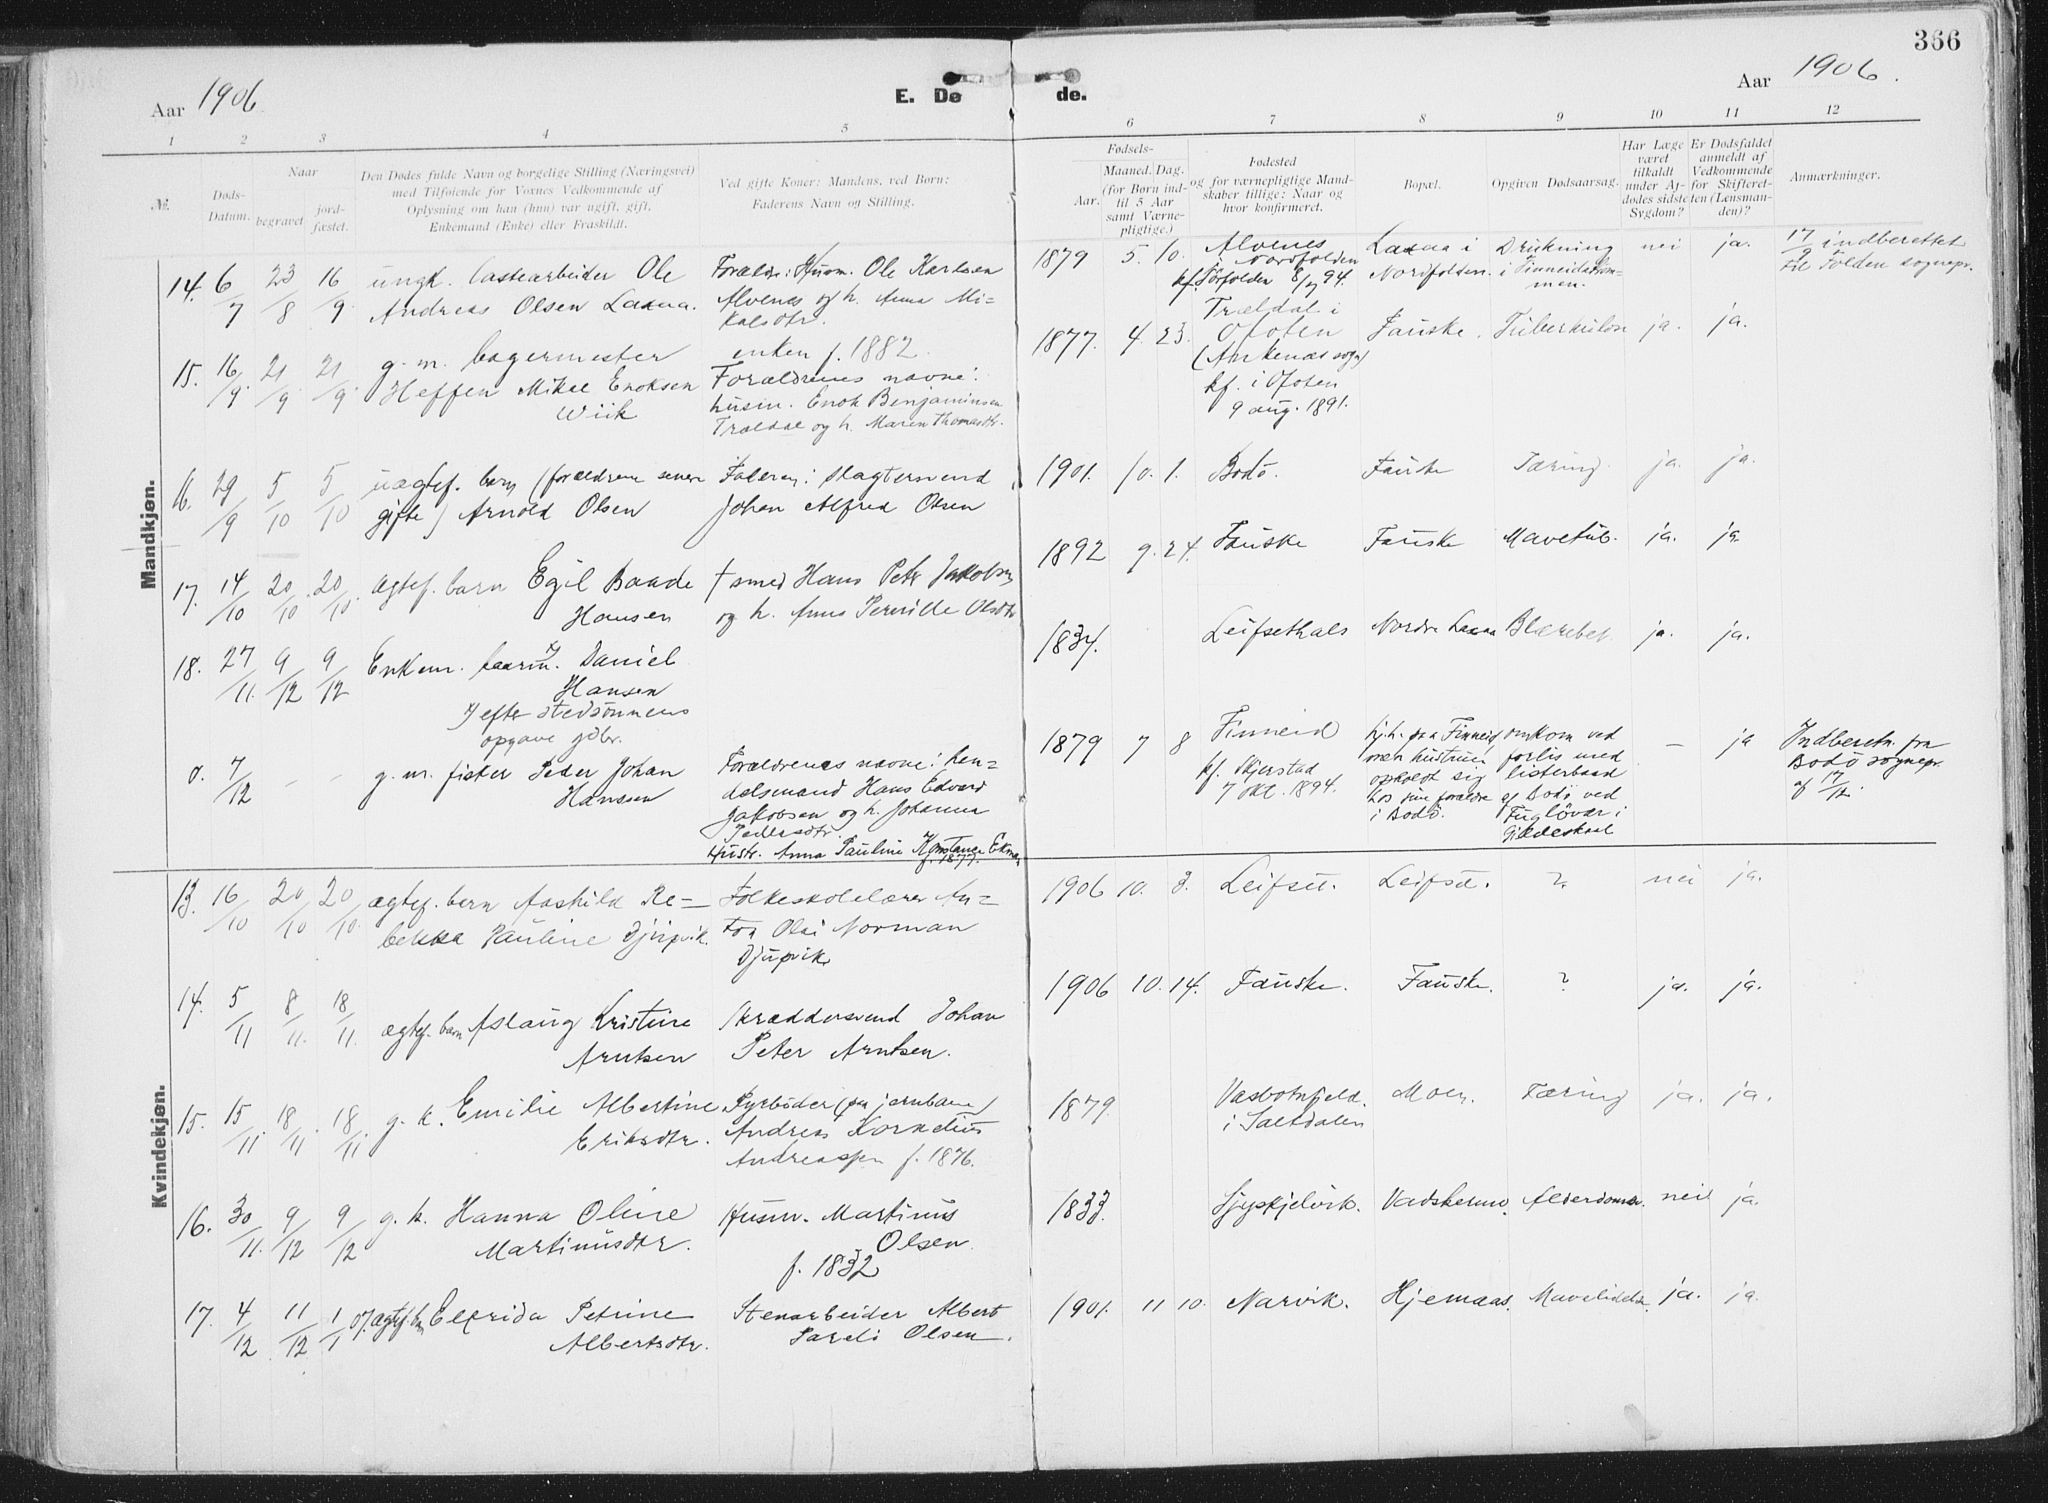 366
Aar 1906
E. De de.
Aar 1906.
1 2 3 4 5 6 7 8 9 10 11 12
№.
Døds-
Datum.
Naar
begravet
jord-
fæstet.
Den Dødes fulde Navn og borgelige Stilling (Næringsvei)
med Tilføiende for Voxnes Vedkommende af
Oplysning om han (hun) var ugift, gift,
Enkemand (Enke) eller Fraskildt.
Ved gifte Koner: Mandens, ved Børn:
Faderens Navn og Stilling.
Fødsels-
Aar.
Maaned. Dag.
(for Børn ind-
til 5 Aar
samt Værne-
pligtige.)
Fødested
og for værnepligtige Mand-
skaber tillige: Naar og
hvor konfirmeret.
Bopæl.
Opgiven Dødsaarsag.
Har Læge
været
tilkaldt
under Af-
dødes sidste
Sygdom?
Er Dødsfaldet
anmeldt af
Vedkommende
for Skifteret-
ten (Lensman-
den)?
Anmærkninger.
Mandkjøn.
14. 6/7 23/8 16/9 ungk. lastearbeider Ole
Andreas Olsen Laxaa.
Forældr: Husm. Ole Karlsen
Alvenes og h. Anna Mi-
kalsdtr.
1879 5. 10. Alvenes
i Nordfolden
kf. Sörfolden 8/7 94.
Laxaa i
Nordfolden.
Drukning
i Finneidstrøm-
men.
nei ja. 17/9 indberettet
til Folden sognepr.
15. 16/9 21/9 21/9 g. m. bagermester
Heffen Mikal Enoksen
Wiik
enken f. 1882.
Forældrenes navne:
husm. Enok Benjaminsen
Trældal og h. Maren Thomasdtr.
1877. 4. 23. Trældal i
Ofoten
(Ankenæs sogn)
kf. i Ofoten
9 aug. 1891.
Fauske. Tuberkulos ja. ja.
16. 29/9 5/10 5/10 uægtef. barn (forældrene senere
gifte) Arnold Olsen
Faderen: slagtersvend
Johan Alfred Olsen
1901. 10. 1. Bodö. Fauske Tæring. ja. ja.
17. 14/10 20/10 20/10 ægtef. barn Egil Baade
Hansen
† smed Hans Peter Jakobsen
og h. Anna Pernille Olsdtr
1892 9. 24. Fauske Fauske Mavetub. ja. ja.
18. 27/11. 9/12 9/12 Enkem. Daniel
Hansen
efter stedsönnens
opgave gdbr.
1834. Leifsethals Nordre Laxaa Blærebet. ja. ja.
0. 7/12 - - g. m. fisker Peder Johan
Hanssen
Forældrenes navne: han-
delsmand Hans Edvard
Jakobsen og h. Johanna
Pedersdtr.
Hustr. Anna Pauline Konstance Ekman
f. 1877.
1879 7 8 Finneid
kf. Skjerstad
7 okt. 1894.
hj.h. paa Finneid
men hustruen
opholdt sig
hos sine forældre
i Bodö.
omkom ved
forlis med
listerbaad
af Bodö ved
Fuglövær i
Gildeskaal
— ja Indberetn. fra
Bodö sognepr.
af 17/12.
Kvindekjøn.
13. 16/10 20/10 20/10 ægtef. barn Aashild Re-
bekka Pauline Djupvik.
Folkeskolelærer An-
ton Olai Norman
Djupvik
1906 10. 3. Leifset. Leifset. ? nei ja.
14. 5/11 8/11. 18/11. ægtef. barn Aslaug Kristine
Arntsen
Skræddersvend Johan
Peter Arntsen.
1906 10. 14. Fauske. Fauske. ? ja. ja.
15. 15/11. 18/11 18/11. g. k. Emilie Albertine
Eriksdtr.
Fyrböder (paa jernbane)
Andreas Kornelius
Andreassen f. 1876.
1879. Vasbotnfjeld
i Saltdalen
Moen. Tæring ja. ja.
16. 30/11. 9/12 9/12 g. k. Hanna Oline
Martinusdtr.
Husm. Martinus
Olsen
f. 1832
1833. Vadskermo. Alderdoms. nei ja.
17. 4/12 11/12 1/1 07. ægtef. bn Elfrida Petrine
Albertsdtr.
Stenarbeider Albert
Pareli Olsen.
1901. 11 10. Narvik. Hjemaas. Mavelidelse. ja. ja.